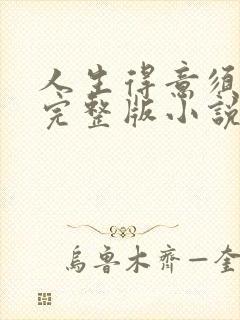 人生得意須
完整版小說
烏魯木齊—奎